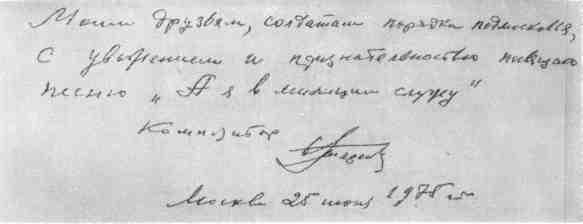 Моим друзьям, солдатам порядка Подмосковья,
с уважением и признательностью посвящаю
песню „А я в милиции служу"
Композитор
Москва 25 июня 1975 г.